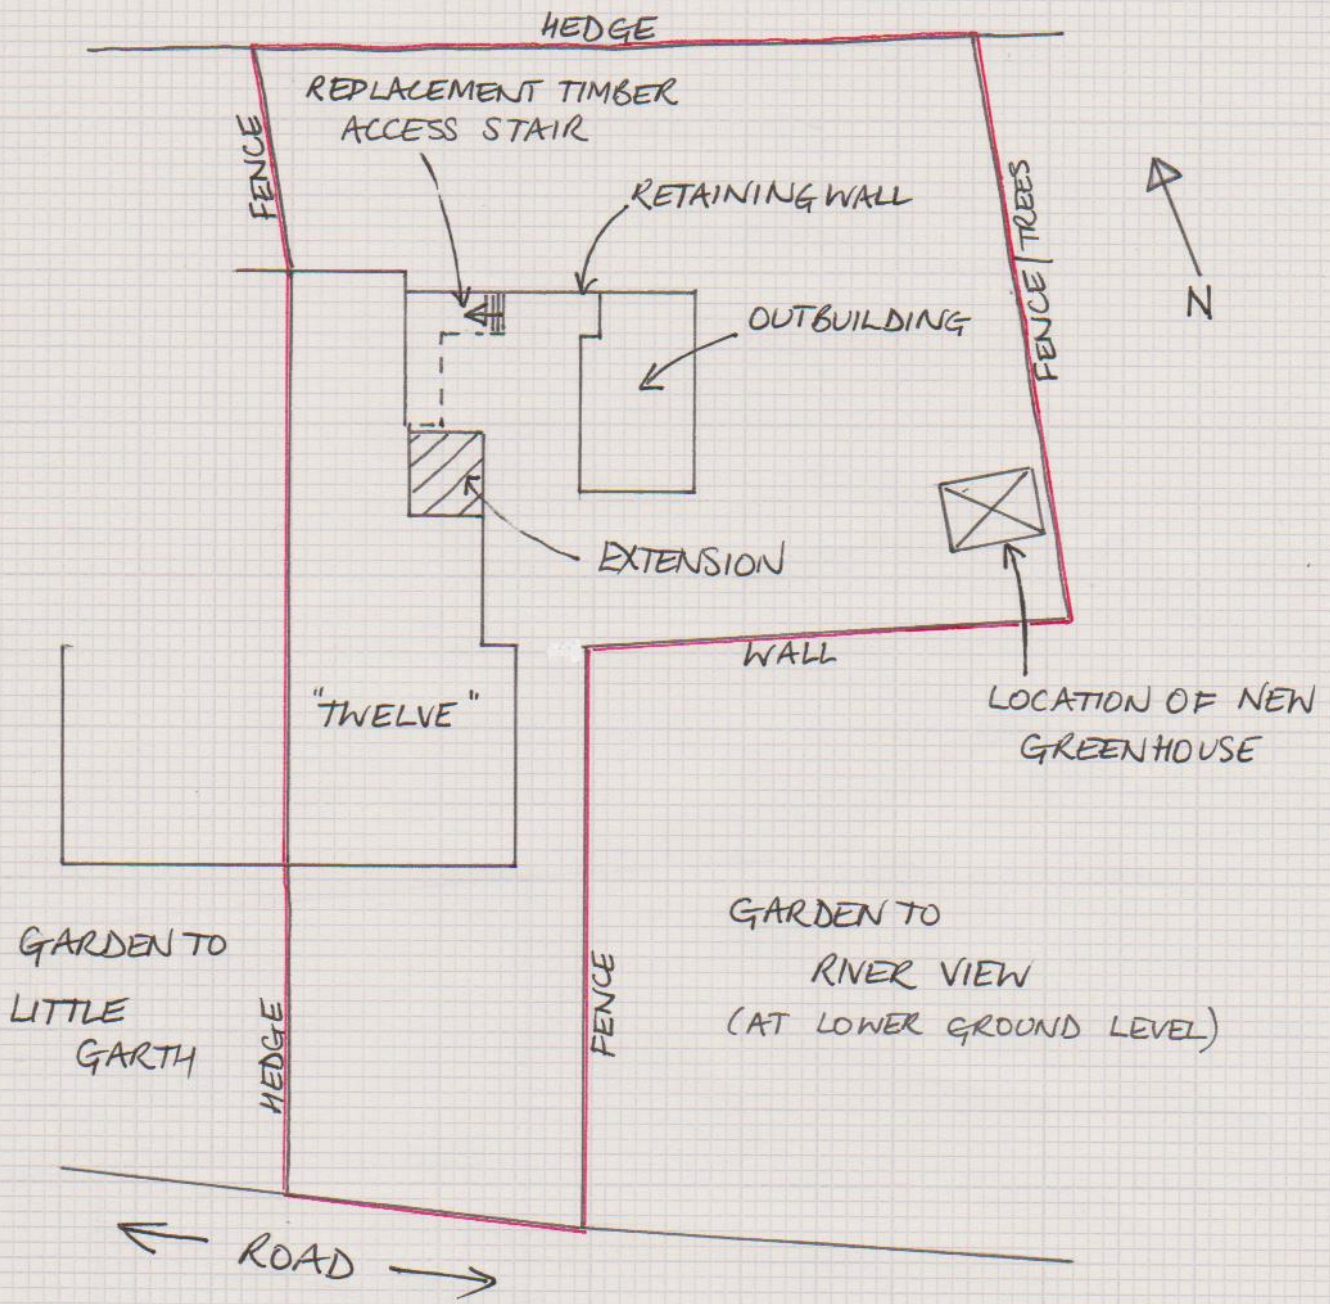 HEDGE
REPLACEMENT TIMBER
ACCESS STAIR
FENCE
RETAINING WALL
FENCE/TREES
N
OUTBUILDING
EXTENSION
WALL
"TWELVE"
LOCATION OF NEW
GREENHOUSE
GARDEN TO
LITTLE
GARTH
GARDEN TO
RIVER VIEW
(AT LOWER GROUND LEVEL)
HEDGE
FENCE
ROAD